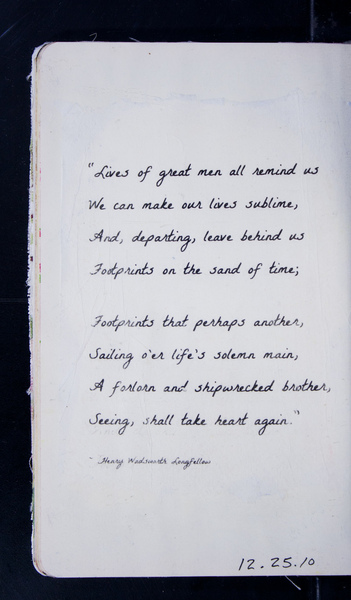 "Lives of great men all remind us
We can make our lives sublime,
And, departing, leave behind us
Footprints on the sand of time;
Footprints that perhaps another,
Sailing o'er life's solemn main,
A forlorn and shipwrecked brother,
Seeing, shall take heart again."
- Henry Wadsworth Longfellow
12.25.10